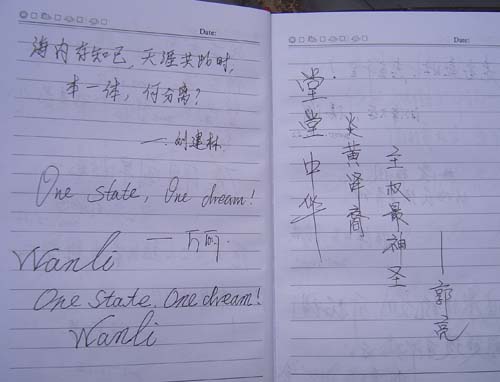 Date:
海内存知己,天涯共此时,
本一体,何分离?
—刘建林
One State, One dream!
—万丽.
Wanli
One State. One dream!
Wanli
Date:
堂堂中华
炎黄泽裔
主权最神圣
—郭亮